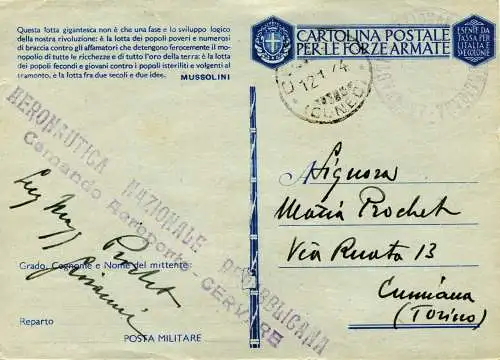 Questa lotta gigantesca non è che una fase e lo sviluppo logico
della nostra rivoluzione: è la lotta dei popoli poveri e numerosi
di braccia contro gli affamatori che detengono ferocemente il mo-
nopolio di tutte le ricchezze e di tutto l'oro della terra: è la lotta dei
popoli fecondi e giovani contro i popoli isteriliti e volgenti al
tramonto, è la lotta fra due secoli e due idee.
MUSSOLINI
CARTOLINA POSTALE
PER LE FORZE ARMATE
ESENTE DA
TASSA PER
L'ITALIA
12.1
(CUNEO)
AERONAUTICA NAZIONALE REPUBBLICANA
Comando Aeroporto - CERVERE
Signora
Maria Prochet
Via Ruata 13
Cumiana
(Torino)
Magg
Prochet
Giovanni
Grado, Cognome e Nome del mittente:
Reparto
POSTA MILITARE